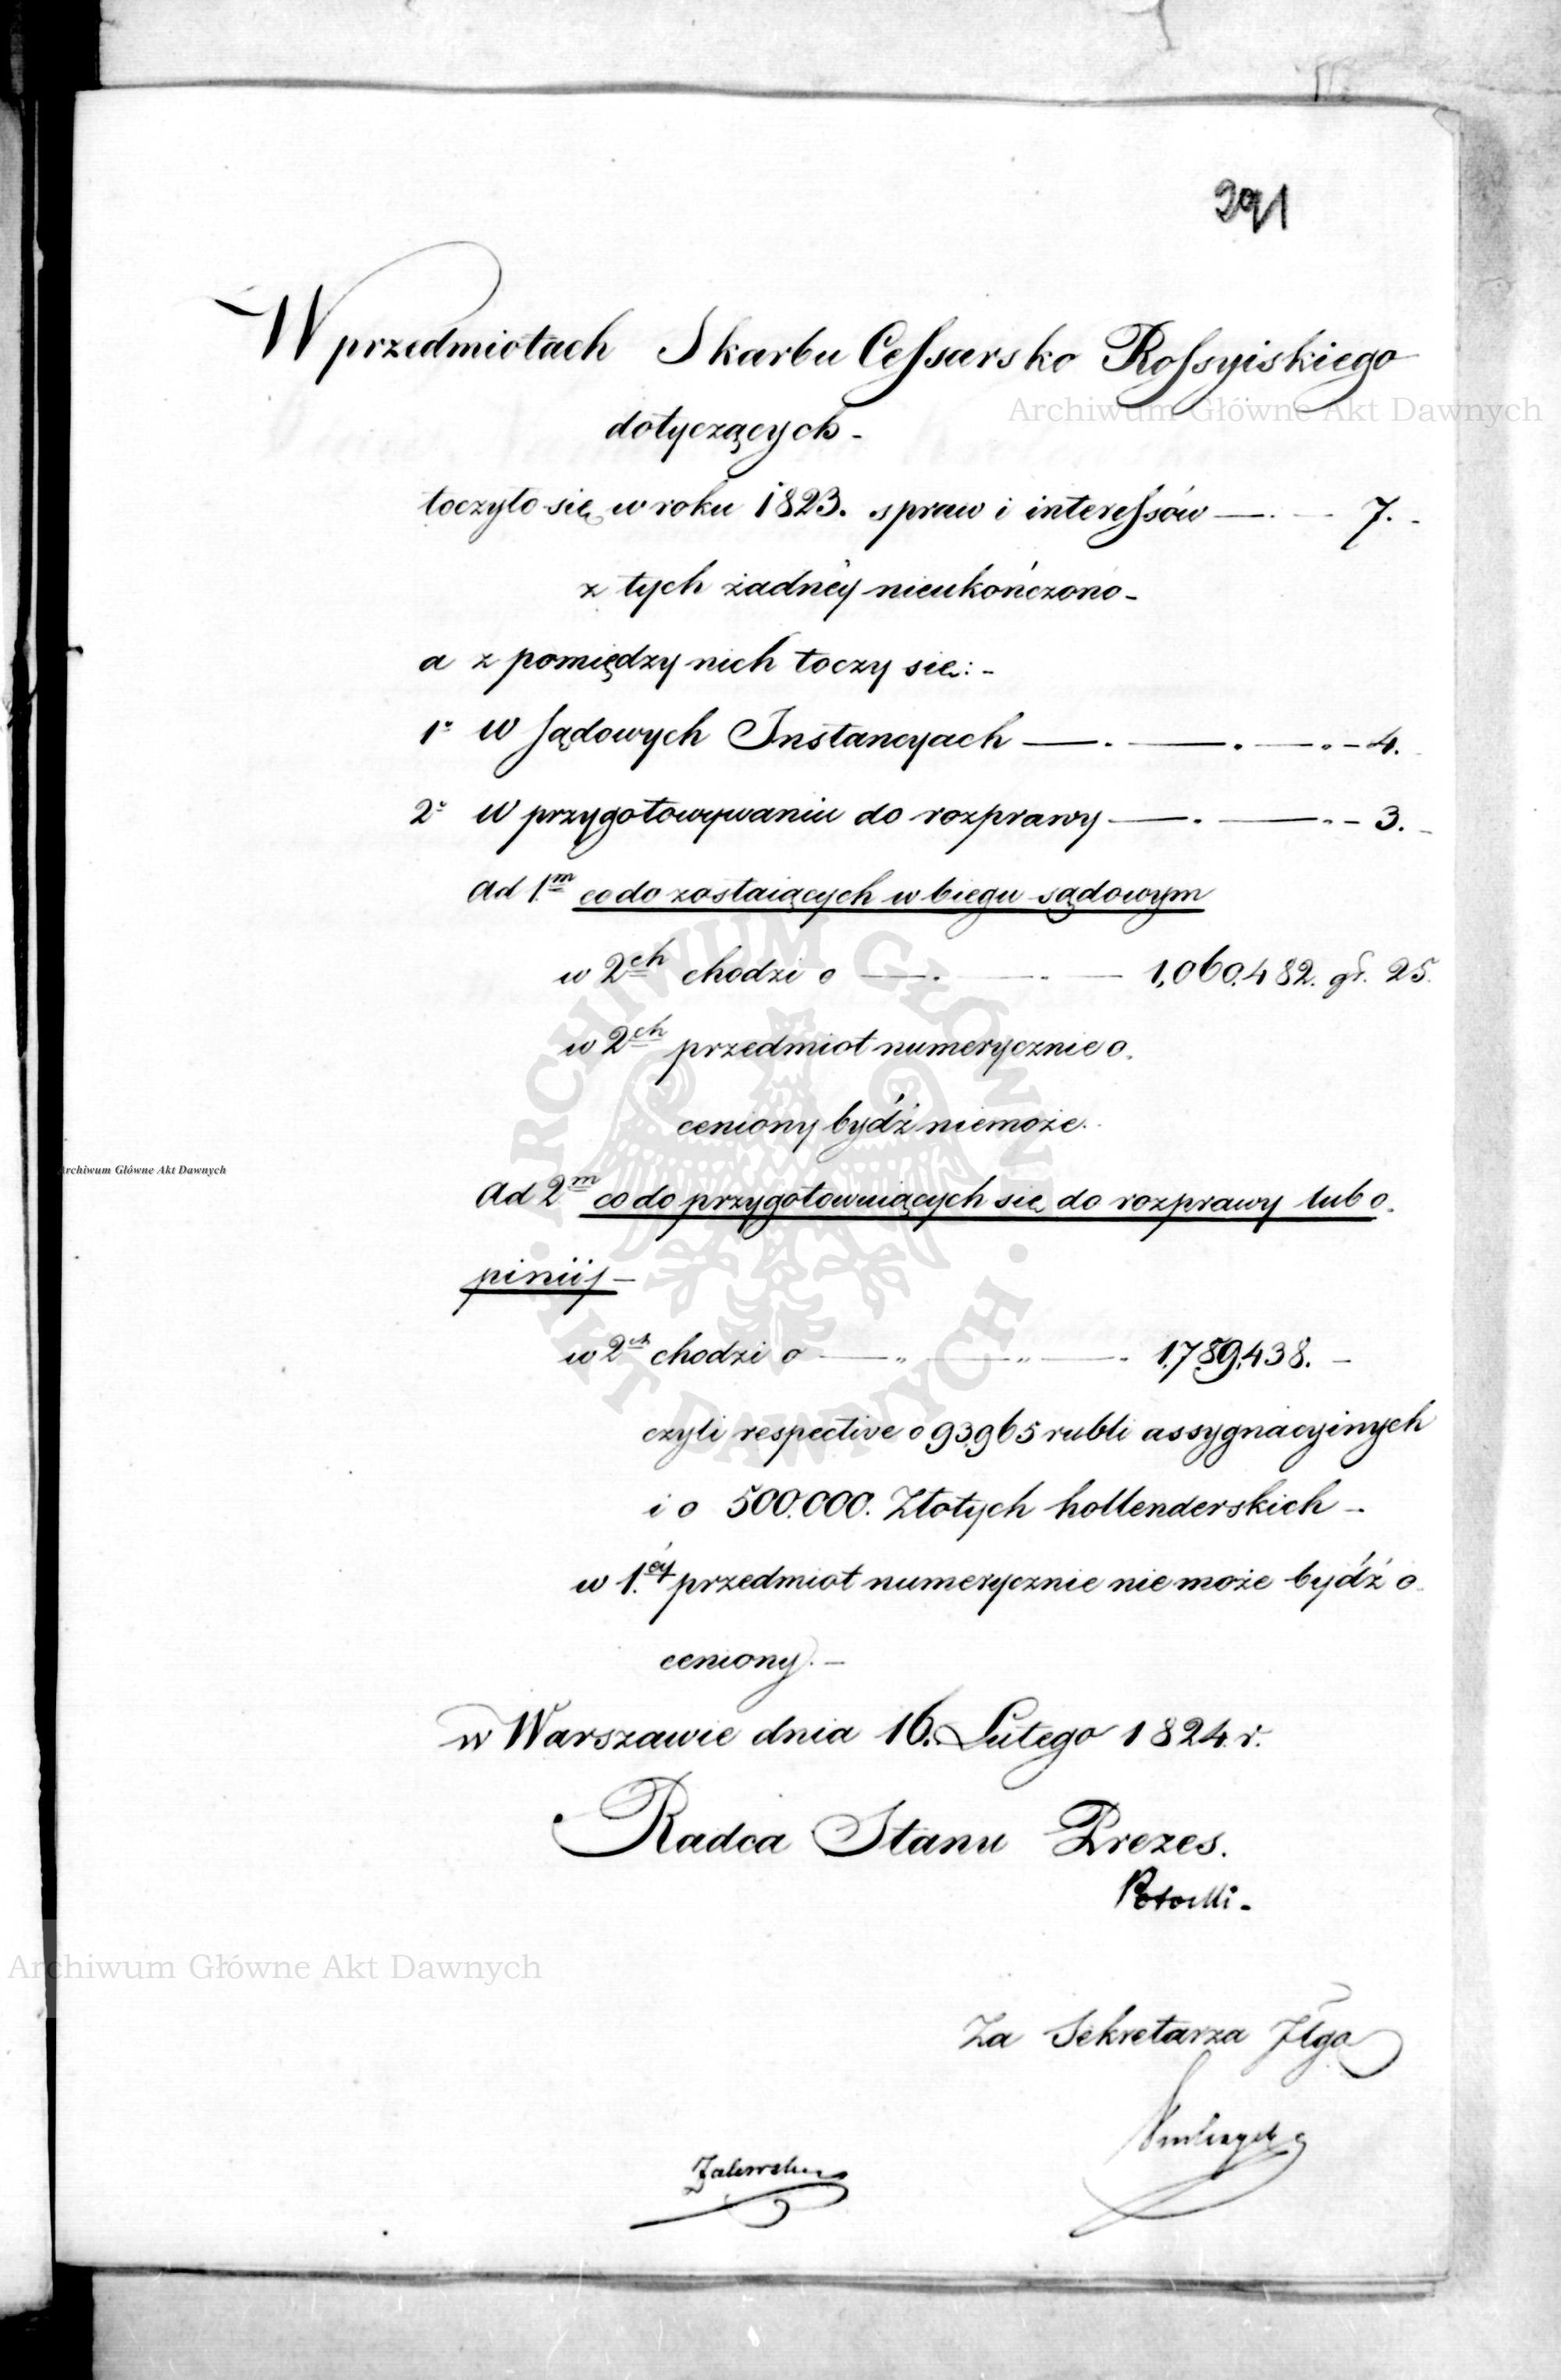 291
W przedmiotach Skarbu Cessarsko Rossyiskiego
dotyczących -
toczyło się w roku 1823. spraw i interessów — . — 7. -
z tych żadnéy nieukończono -
a z pomiędzy nich toczy się: -
1° w Sądowych Instancyach — . — . — . - 4.
2° w przygotowywaniu do rozprawy — . — . - 3. -
Ad 1.m co do zostaiących w biegu sądowym
w 2ch chodzi o — . — . — 1,060,482. gr. 25.
w 2ch przedmiot numerycznie o.
ceniony bydź niemoże.
Ad 2m co do przygotowuiących się do rozprawy lub o.
piniij -
w 2ch chodzi o — „ — „ — . 1,789,438. -
czyli respective o 93,965 rubli assygnacyinych
i o 500.000. Złotych hollenderskich -
w 1.éy przedmiot numerycznie nie może bydź o.
ceniony. -
w Warszawie dnia 16. Lutego 1824 r.
Radca Stanu Prezes.
Potocki -
Za Sekretarza Jlgo
Zalewski
Archiwum Główne Akt Dawnych
Archiwum Główne Akt Dawnych
Archiwum Główne Akt Dawnych
ARCHIWUM GŁÓWNE · AKT DAWNYCH ·